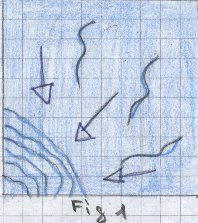 Fig 1